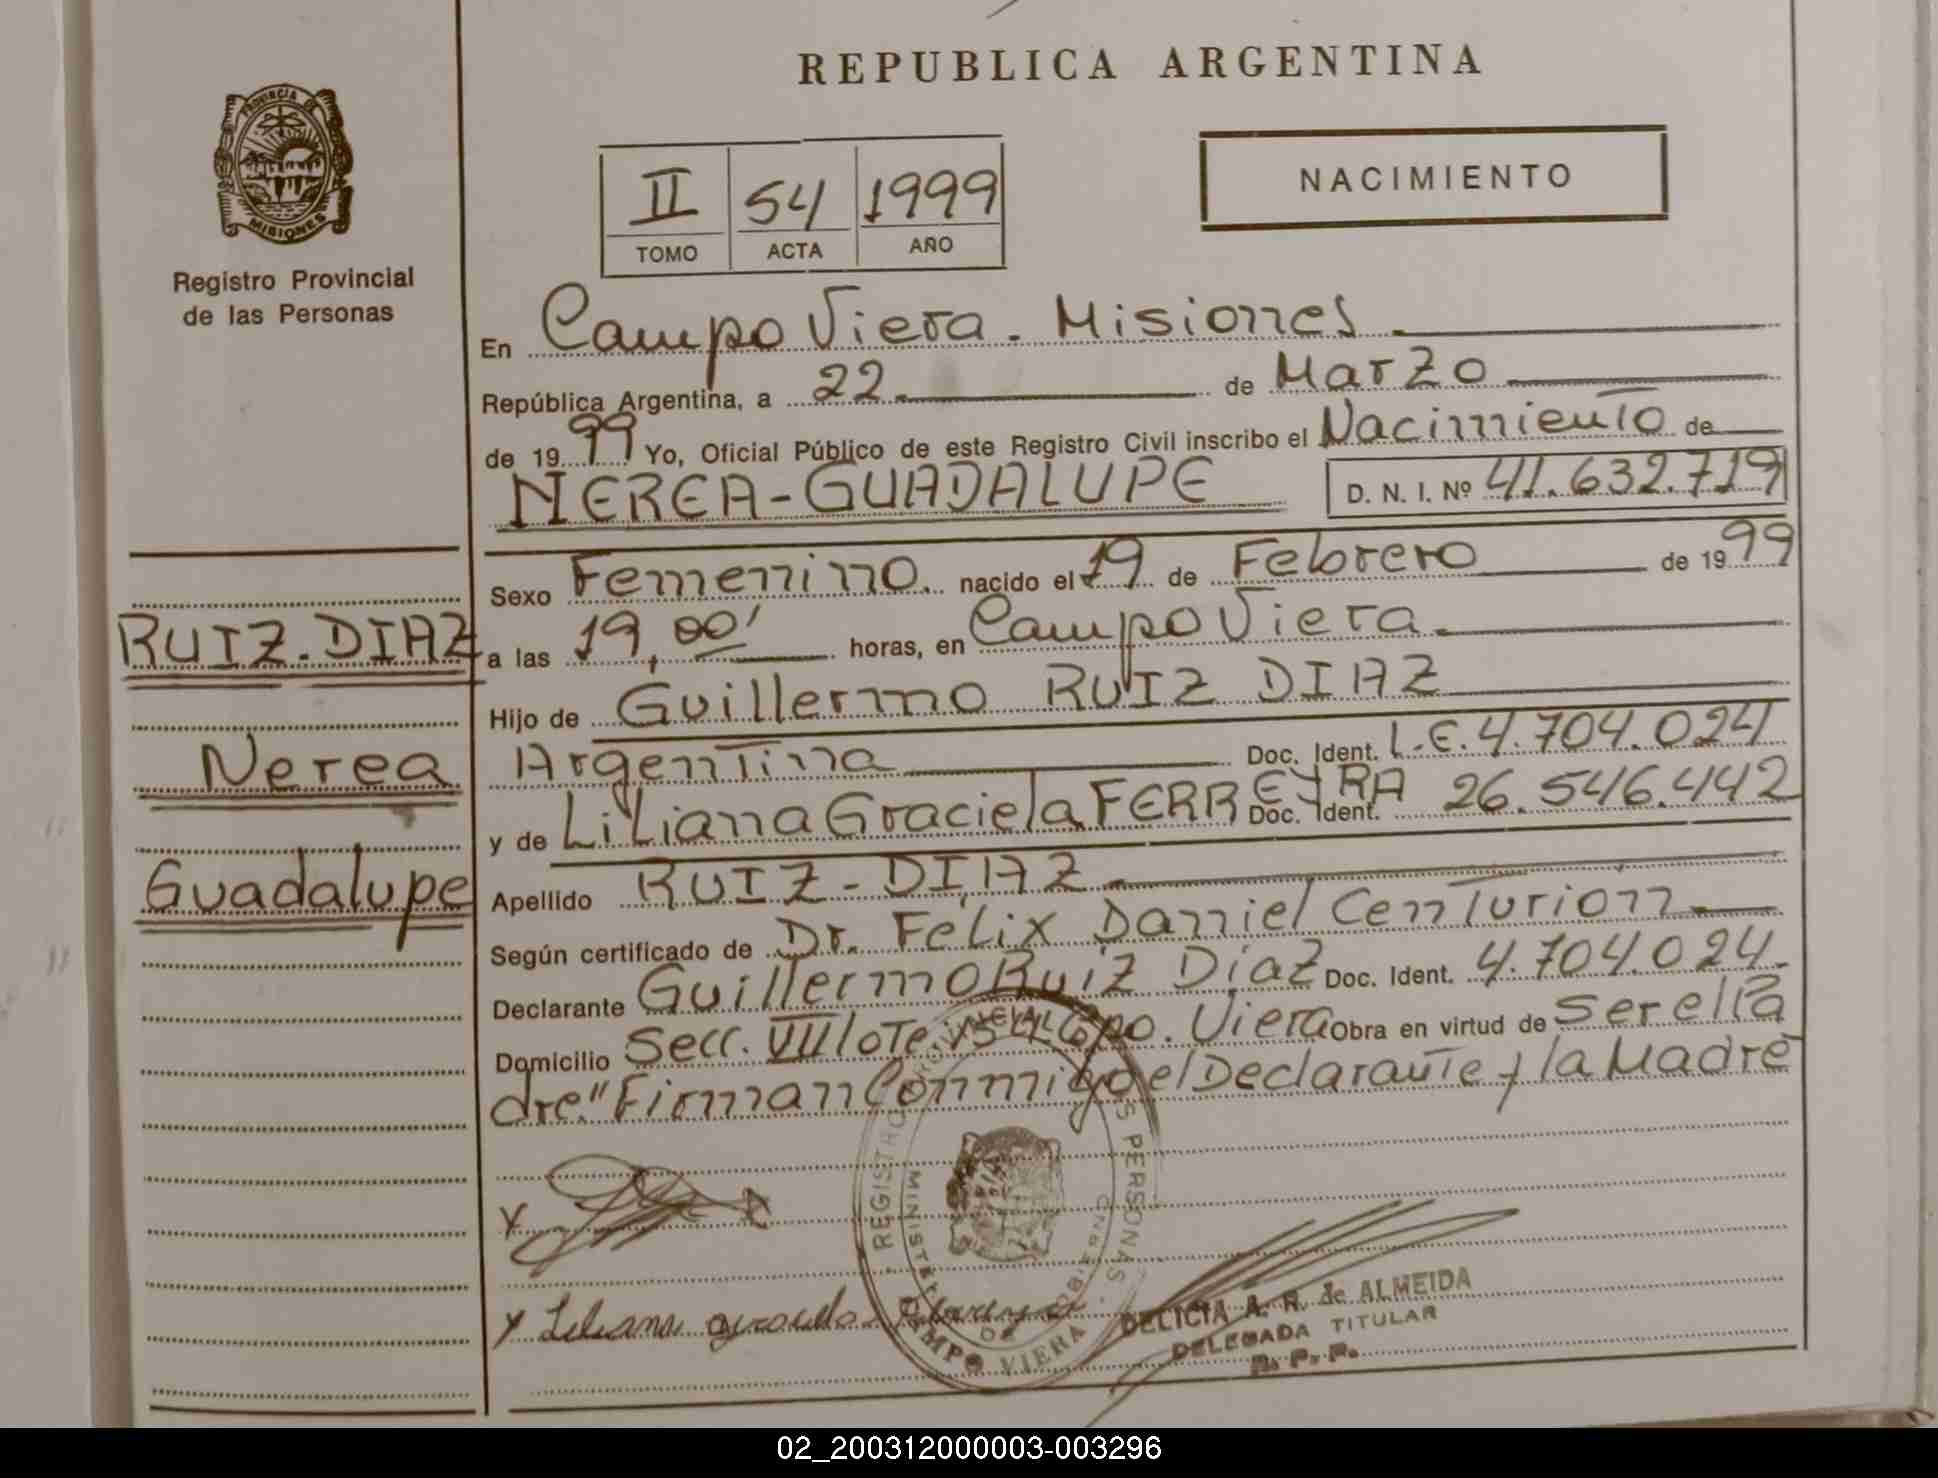 REPUBLICA ARGENTINA
PROVINCIA DE
MISIONES
Registro Provincial
de las Personas
II 54 1999
TOMO ACTA AÑO
NACIMIENTO
En Campo Viera. Misiones.
República Argentina, a 22. de Marzo
de 1999 Yo, Oficial Público de este Registro Civil inscribo el Nacimiento de
NEREA-GUADALUPE D. N. I. Nº 41.632.719
Sexo Femenino. nacido el 19 de Febrero de 1999
RUIZ. DIAZ
a las 19,00' horas, en Campo Viera.
Hijo de Guillermo RUIZ DIAZ
Nerea
Argentina Doc. Ident. L.E. 4.704.024
y de Liliana Graciela FERREYRA Doc. Ident. 26.546.442
Guadalupe
Apellido RUIZ-DIAZ.
Según certificado de Dr. Felix Daniel Centurion
Declarante Guillermo Ruiz Diaz Doc. Ident. 4.704.024.
Domicilio Secc. VIII lote 154 Cpo. Viera Obra en virtud de Ser el Pa
dre." Firman Conmigo el Declarante y la Madre
REGISTRO PROVINCIAL PERSONAS
MINISTE
DE
CAMPO VIERA
Liliana
DELICIA A. R. de ALMEIDA
DELEGADA TITULAR
R. P. P.
02_200312000003-003296